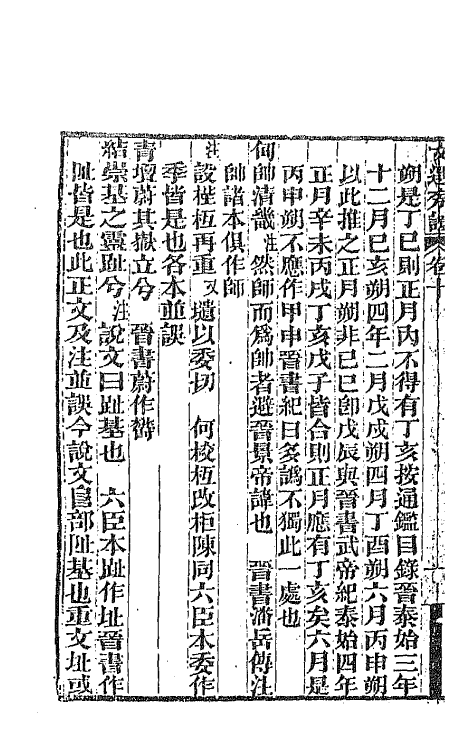 朔是丁巳則正月內不得有丁亥按通鑑目錄晉泰始三年
十二月己亥朔四年二月戊戌朔四月丁酉朔六月丙申朔
以此推之正月朔非己巳卽戊辰與晉書武帝紀泰始四年
正月辛未丙戌丁亥戊子皆合則正月應有丁亥矣六月是
丙申朔不應作甲申晉書紀日多譌不獨此一處也
甸師清畿注然師而爲帥者避晉景帝諱也 晉書潘岳傳注
帥諸本俱作師
注設梐枑再重又壝以委切 何校枑改柜陳同六臣本委作
季皆是也各本並誤
青壇蔚其嶽立兮 晉書蔚作鬱
結崇基之靈趾兮注說文曰趾基也 六臣本趾作址晉書作
阯皆是也此正文及注並誤今說文𨸏部阯基也重文址或